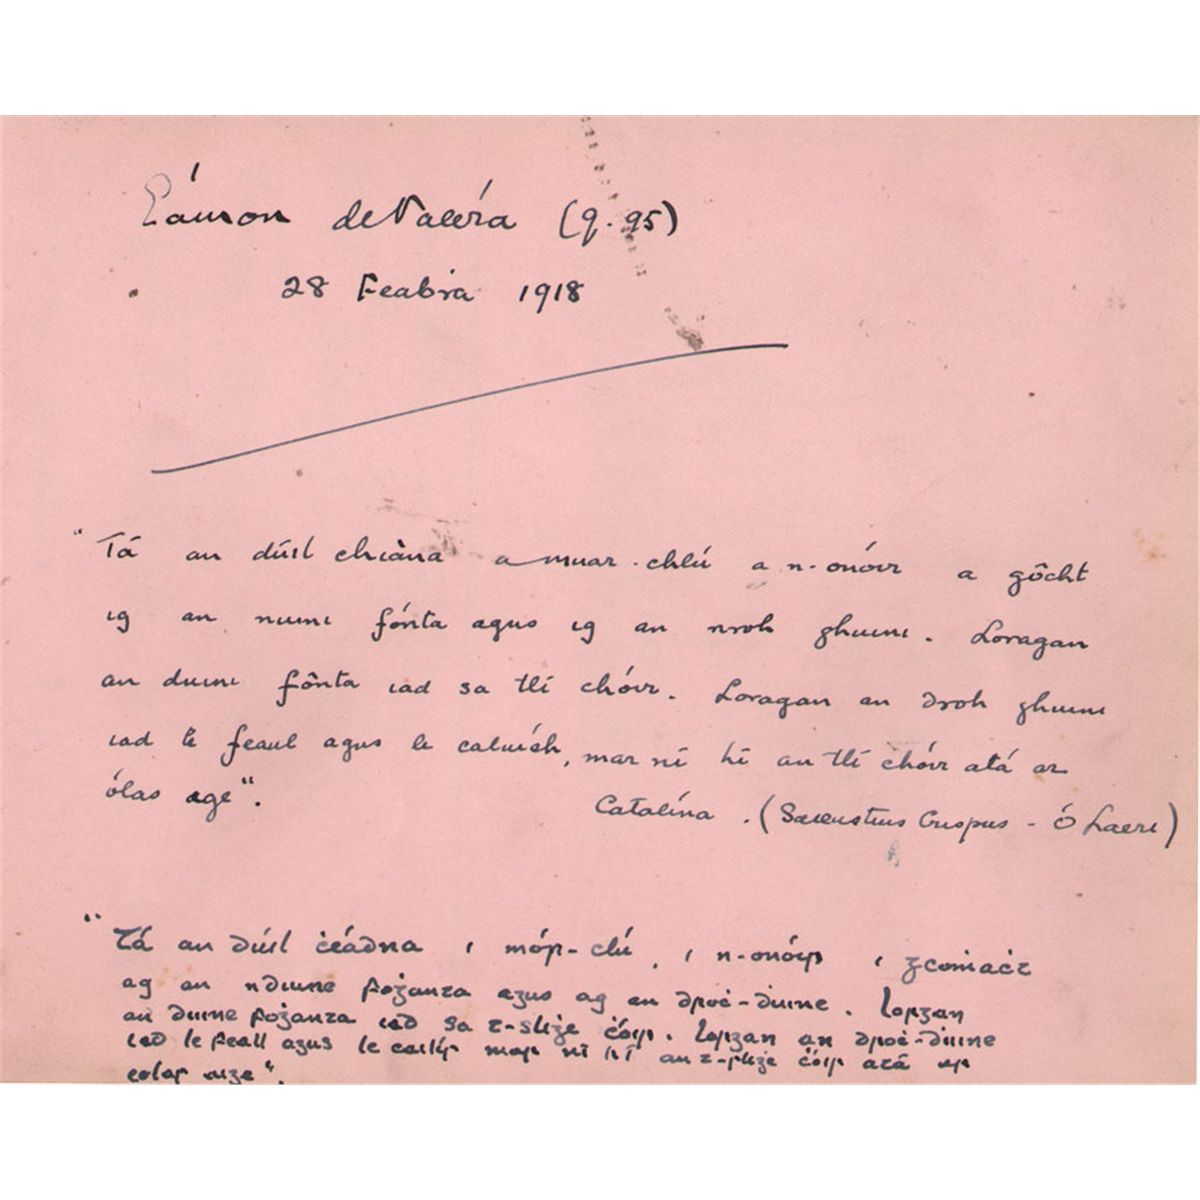 Éamon de Valéra (q. 95)
28 Feabra 1918
"Tá an dúil chiàna a muar-chlú a n-onóir a gôcht
ig an nuini fónta agus ig an nroh ghuini. Loragan
an duini fônta iad sa tlí chóir. Loragan an droh ghuini
iad le feaul agus le caluích, mar ní hí an tlí chóir atá ar
ólas age".
Catalína. (Saeustius Crispus - Ó Laeri)
"Tá an dúil ċéadna i mór-clú, i n-onóir i gcomaċt
ag an nduine foġanta agus ag an droċ-duine. Lorgan
an duine foġanta iad sa t-sliġe ċóir. Lorgan an droċ-duine
iad le feall agus le cailír mar ní hí an t-sliġe ċóir atá ar
eolas aige".